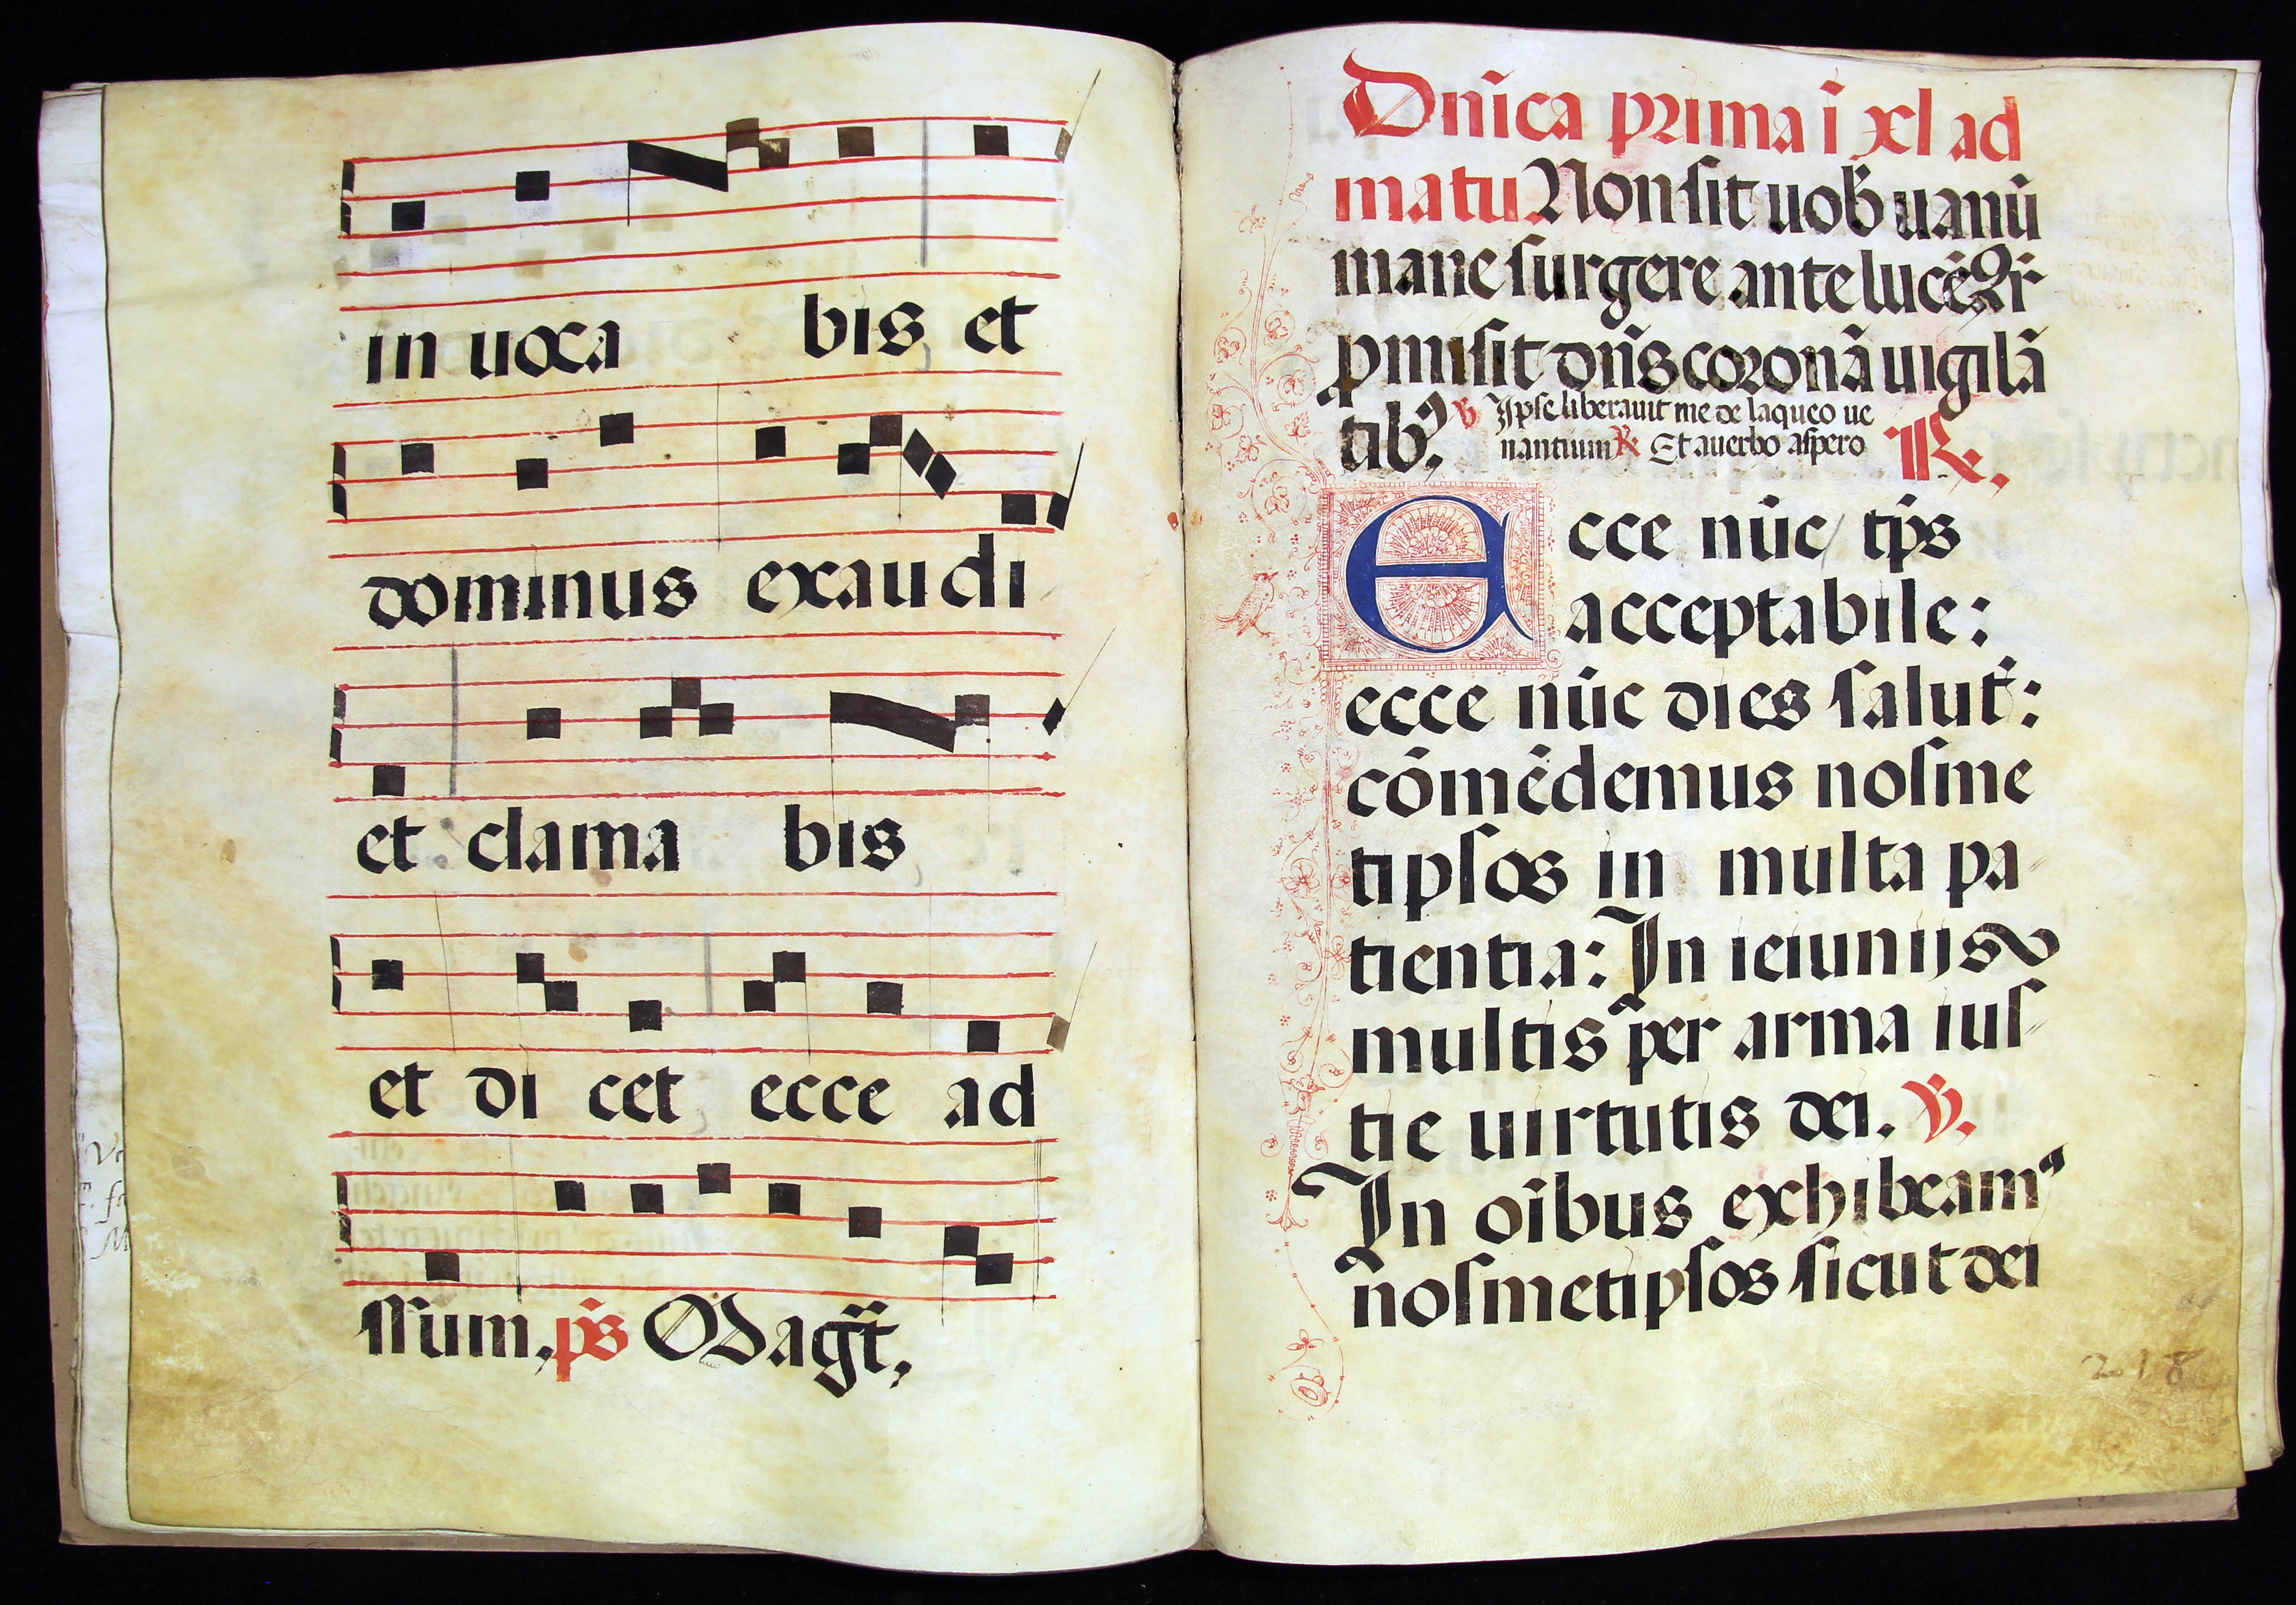 in uoca bis et
dominus exaudi
et clama bis
et di cet ecce ad
ssum, ps̄ Magt̄,
Dñica prima ī xl ad
matu Non sit uob̄ uanū
mane surgere ante lucē Qr̄
ꝓmisit dn̄s coronā uigilā
tibꝰ. ℣ Ipse liberauit me de laqueo ue
nantium ℟ Et a uerbo aspero ℟.
Ecce nūc tp̄s
acceptabile:
ecce nūc dies salut̄:
cōmēdemus nosme
tipsos in multa pa
tientia: In ieiunijs
multis per arma ius
tie uirtutis dei. ℣.
In oībus exhibeamꝰ
nosmetipsos sicut dei
218